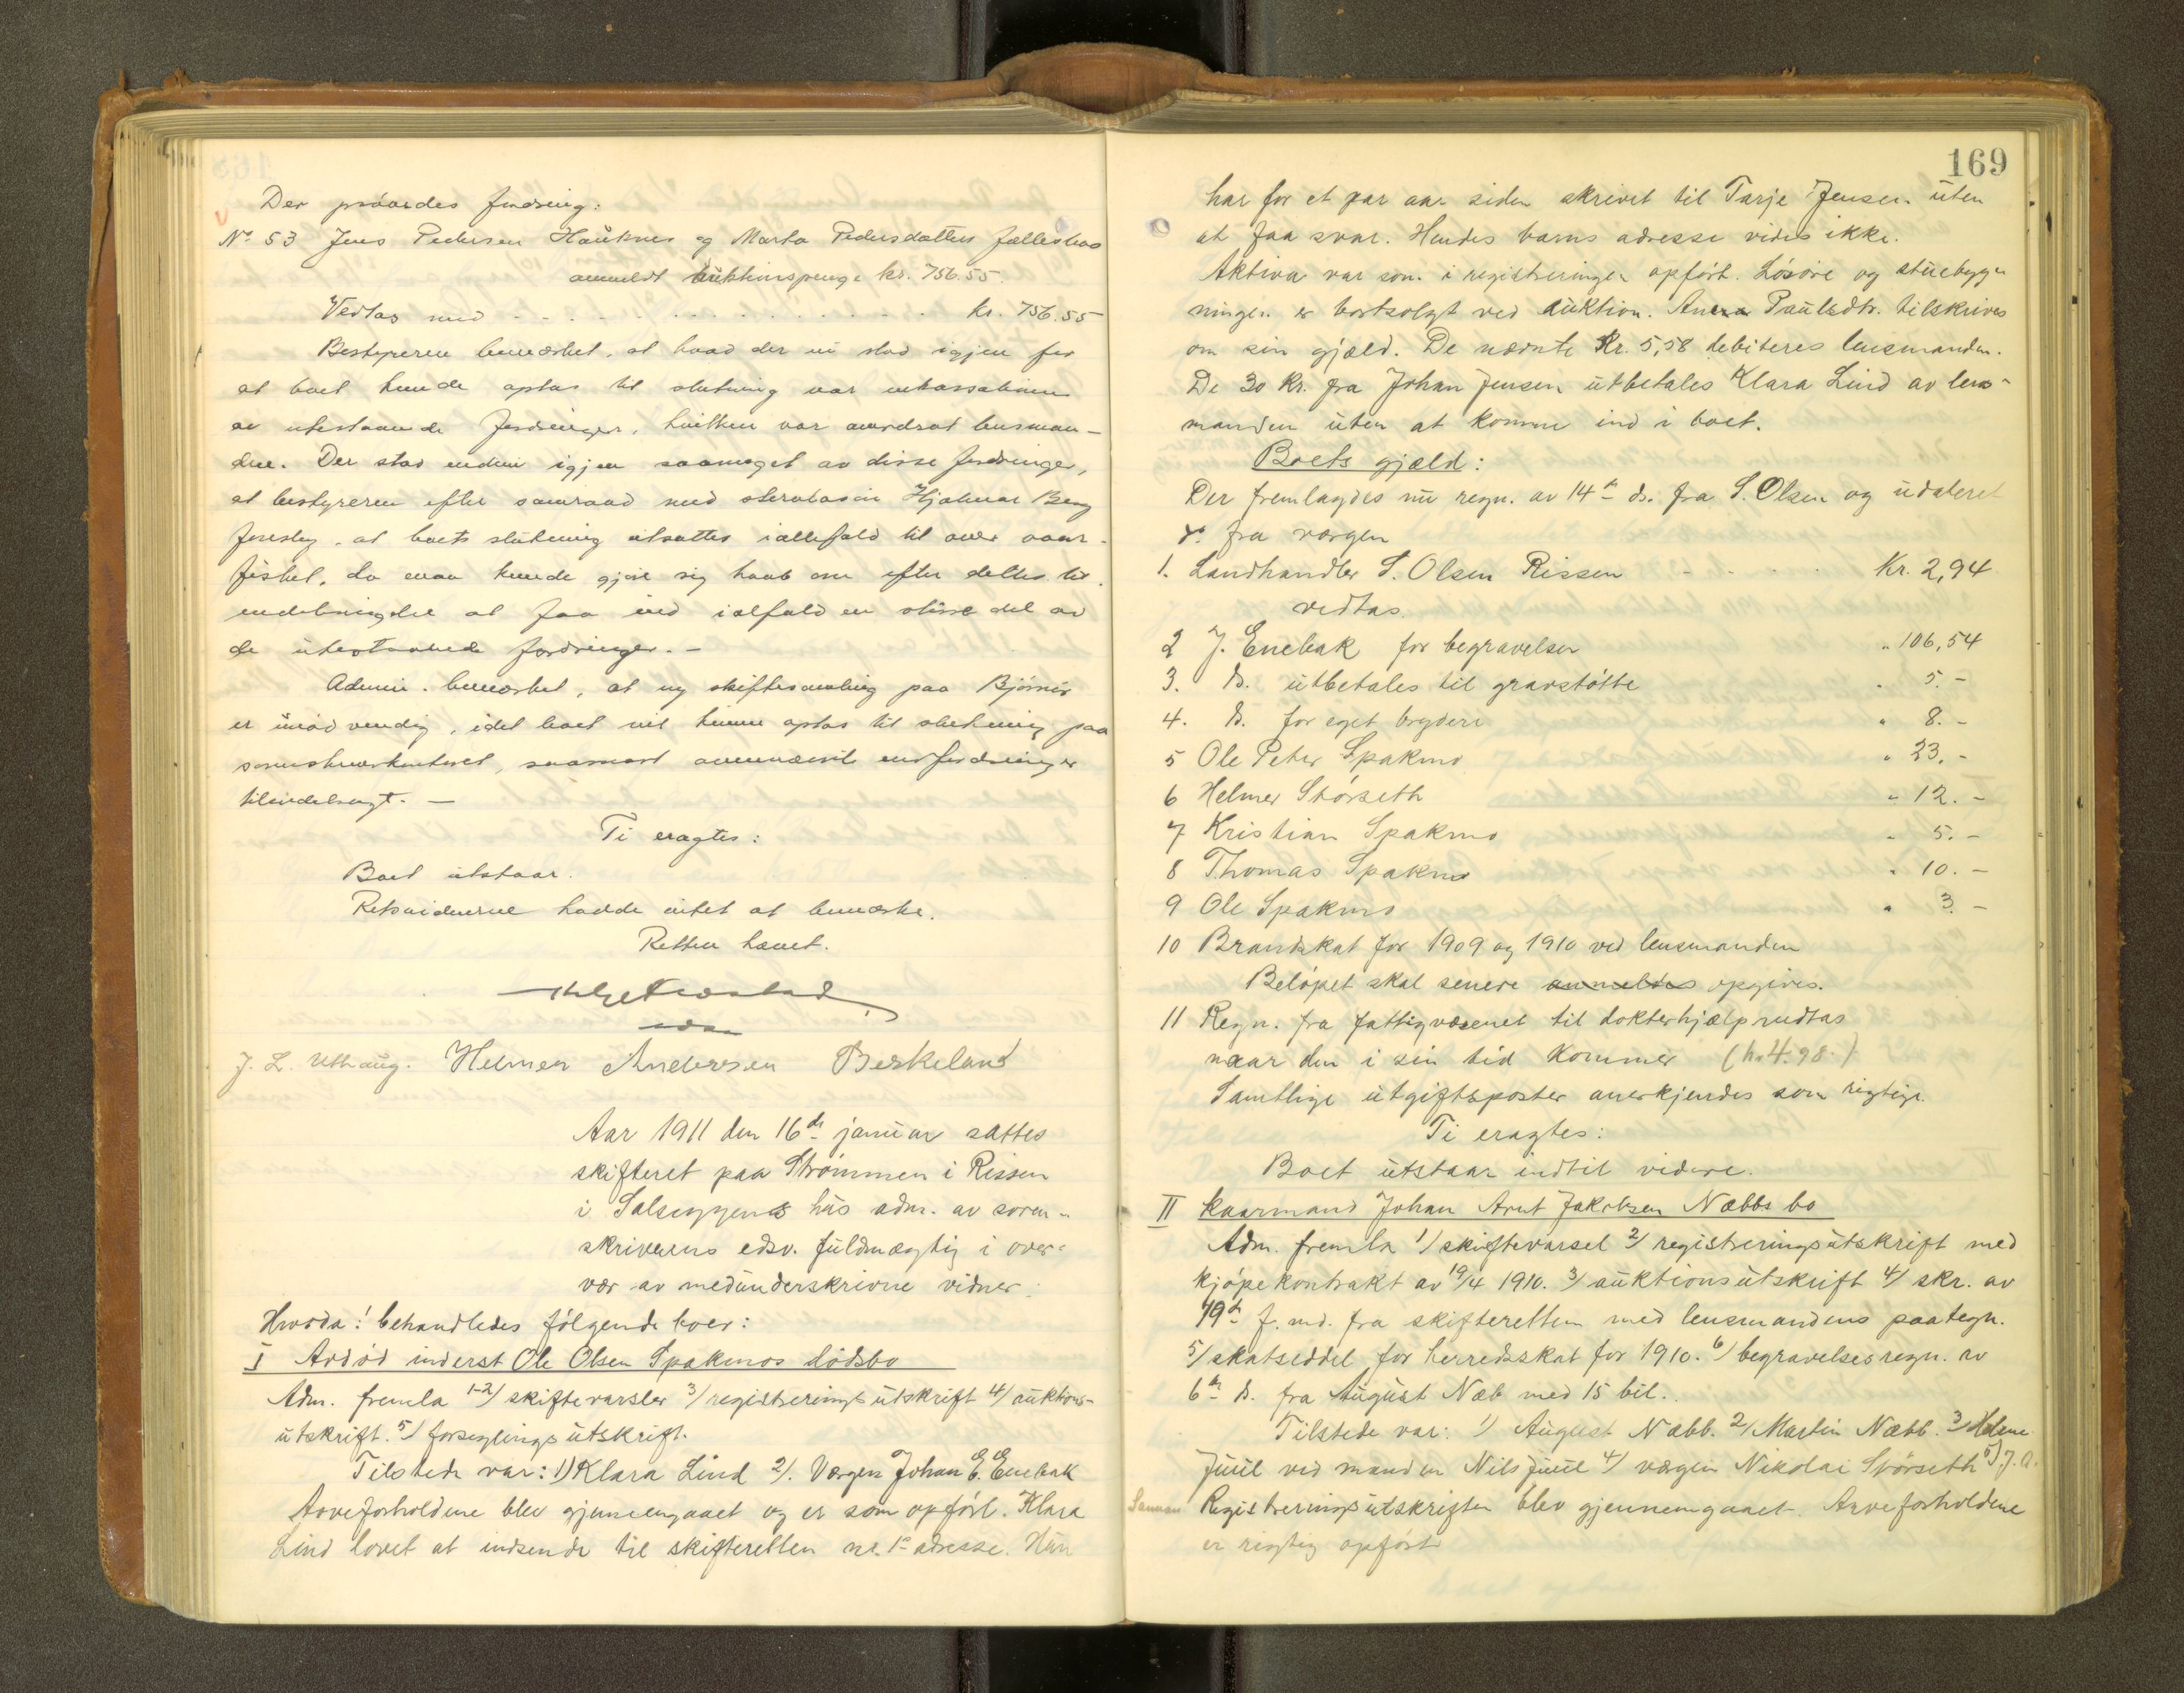 Der prøvdes fordring:
No 53 Jens Pedersen Hauknes og Marta Pedersdatters fællesbo
anmeldt auktionspenge kr. 756.55.
Vedtas med - - - - - kr. 756.55
Bestyreren bemerket, at hvad der nu stod igjen for
at boet kunde optas til slutning var inkassationen
av utestaaende fordringer, hvilken var anordnet lensman-
den. Der stod endnu igjen saameget av disse fordringer,
at bestyreren efter samraad med Hjalmar Berg
foreslog, at boets slutning utsattes iallefald til over vaar-
fisket, da man kunde gjøre sig haab om efter dettes til-
endebringelse at faa ind ialfald en større del av
de utestaaende fordringer. -
Admin. bemerket, at ny skiftesamling paa Bjørnør
er unødvendig, idet boet vil kunne optas til slutning paa
sorenskriverkontoret, saasnart inkassationen er
tilendebragt. -
Ti eragtes:
Boet utstaar.
Retsvidnerne hadde intet at bemerke.
Retten hævet.
J. L. Uthaug. Helmer Andersen Berkeland
Aar 1911 den 16de januar sattes
skifteret paa Strømmen i Rissen
i Salseggens hus adm. av soren-
skriverens edsv. fuldmægtig i over-
vær av medunderskrivne vidner.
Hvorda: behandledes følgende boer:
I Avdød inderst Ole Olsen Spakmos dødsbo
Adm. fremla 1-2/ skiftevarsler 3/ registreringsutskrift 4/ auktions-
utskrift. 5/ forseglingsutskrift.
Tilstede var: 1) Klara Lind 2). Vergen Johan E. Enebak
Arveforholdene blev gjennemgaaet og er som opført. Klara
Lind lovet at indsende til skifteretten nr. 1s adresse. Hun
169
har for et par aar siden skrevet til Tarje Jensen uten
at faa svar. Hendes barns adresse vides ikke.
Aktiva var som i registreringen opført. Løsøre og stuebygn
ningen er bortsolgt ved auktion. Anna Paulsdtr. tilskrives
om sin gjæld. De nævnte Kr. 5,58 debiteres lensmanden.
De 30 kr. fra Johan Jensen utbetales Klara Lind av lens-
manden uten at komme ind i boet.
Boets gjæld:
Der fremlagdes nu regn. av 14de ds. fra S. Olsen og udateret
do. fra vergen
1. Landhandler S. Olsen Rissen - - - - Kr. 2,94
vedtas.
2 J. Enebak for begravelsen " 106,54
3. ds. utbetales til gravstøtte " 5.-
4. ds. for eget bryderi " 8.-
5 Ole Peter Spakmo " 23.-
6 Helmer Størseth " 12.-
7 Kristian Spakmo " 5.-
8 Thomas Spakmo " 10.-
9 Ole Spakmo " 3.-
10 Brandskat for 1909 og 1910 ved lensmanden
Beløpet skal senere anmeldes opgives.
11 Regn. fra fattigvæsenet til dokterhjælp vedtas
naar den i sin tid kommer (kr. 4.98.)
Samtlige utgiftsposter anerkjendes som rigtige.
Ti eragtes:
Boet utstaar indtil videre.
II Kaarmand Johan Arnt Jakobsen Næbbs bo
Adm. fremla 1/ skiftevarsel 2/ registreringsutskrift med
kjøpekontrakt av 19/4 1910. 3/ auktionsutskrift 4/ skr. av
19de f. md. fra skifteretten med lensmandens paategn.
5/ skatseddel for herredsskat for 1910. 6/ begravelsesregn. av
6te ds. fra August Næb med 15 bil.
Tilstede var: 1) August Næbb. 2/ Martin Næbb. 3/ Helene
Juul ved manden Nils Juul 4/ vergen Nikolai Størseth 5) J. A.
Registreringsutskriften blev gjennemgaaet. Arveforholdene
er rigtig opført